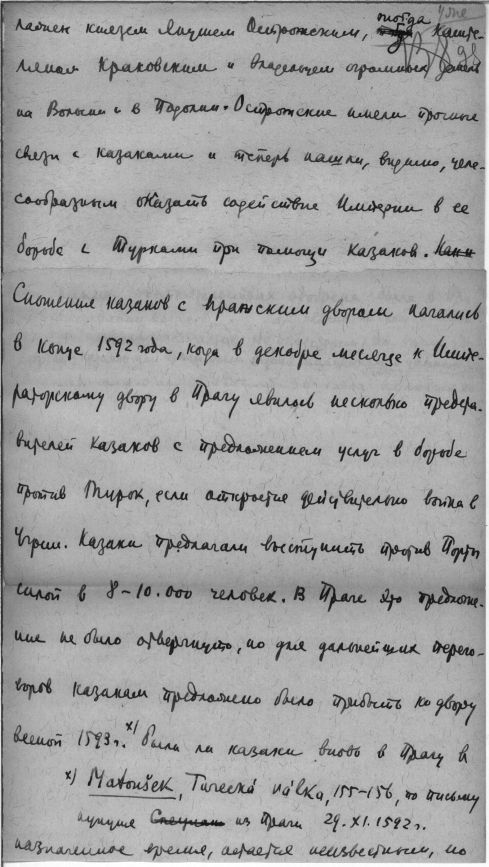 князем Янушем Острожским, тогда Каште-
ляном Краковским и владельцем огромных
на Волыни и в Подолии. Острожские имели прочные
связи с казаками и теперь нашли, видимо, целе-
сообразным оказать содействие Империи в ее
борьбе с Турками при помощи казаков.
Сношения казаков с пражским двором начались
в конце 1592 года, когда в декабре месяце к Импе-
раторскому двору в Прагу явилось несколько предста-
вителей казаков с предложением услуг в борьбе
против Турок, если откроется действительно война в
Угрии. Казаки предлагали выступить против Порты
силой в 8-10.000 человек. В Праге это предложе-
ние не было отвергнуто, но для дальнейших перего-
воров казакам предложено было прибыть ко двору
весной 1593 г. x) Были ли казаки вновь в Прагу в
x) Matoušek, Turecká válka, 155-156, по письму
нунция из Праги 29.XI.1592 г.
назначенное время, остается неизвестным, но